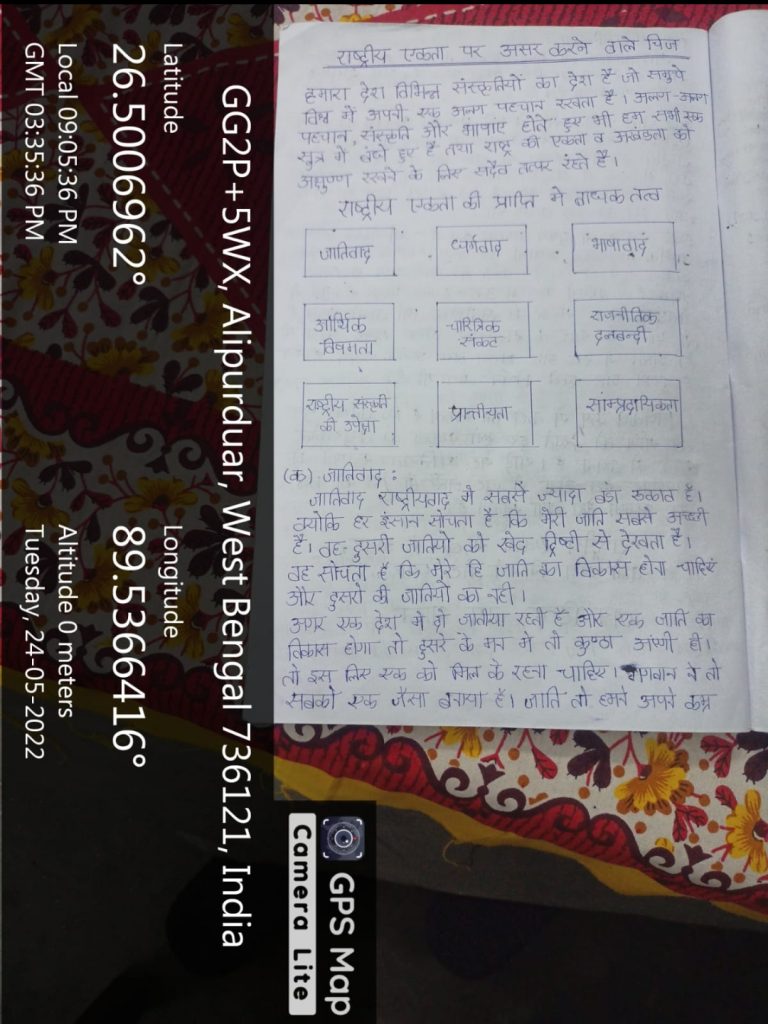 राष्ट्रीय एकता पर असर करने वाले चिज
हमारा देश विभिन्न संस्कृतियों का देश है जो समुचे
विश्व में अपनी एक अलग पहचान रखता है। अलग-अलग
पहचान, संस्कृति और भाषाएं होते हुए भी हम सभी एक
सुत्र मे बंधे हुए है तथा राष्ट्र की एकता व अखंडता को
अक्षुण्ण रखने के लिए सदैव तत्पर रहते है।
राष्ट्रीय एकता की प्राप्ति मे बाधक तत्व
जातिवाद
भाषावाद
आर्थिक
विषमता
चारित्रिक
संकट
राजनीतिक
दलबन्दी
राष्ट्रीय संस्कृति
की उपेक्षा
प्रान्तीयता
साम्प्रदायिकता
(क) जातिवाद :
जातिवाद राष्ट्रीयवाद मे सबसे ज्यादा बड़ा रुकावट है।
क्योकि हर इंसान सोचता है कि मेरी जाति सबसे अच्छी
है। वह दुसरी जातियो को द्रिष्टी से देखता है।
वह सोचता है कि मेरे हि जाति का विकास होना चाहिए
और दुसरो की जातियों का नही।
अगर एक देश मे दो जातीया रहती है और एक जाति का
विकास होगा तो दुसरे के मन मे तो कुण्ठा आएंगी ही।
तो इस लिए एक को मिल के रहना चाहिए। भगवान ने तो
सबको एक जैसा बनाया है। जाति तो हमने अपने
GG2P+5WX, Alipurduar, West Bengal 736121, India
Latitude
26.5006962°
Longitude
89.5366416°
Local 09:05:36 PM
GMT 03:35:36 PM
Altitude 0 meters
Tuesday, 24-05-2022
GPS Map
Camera Lite